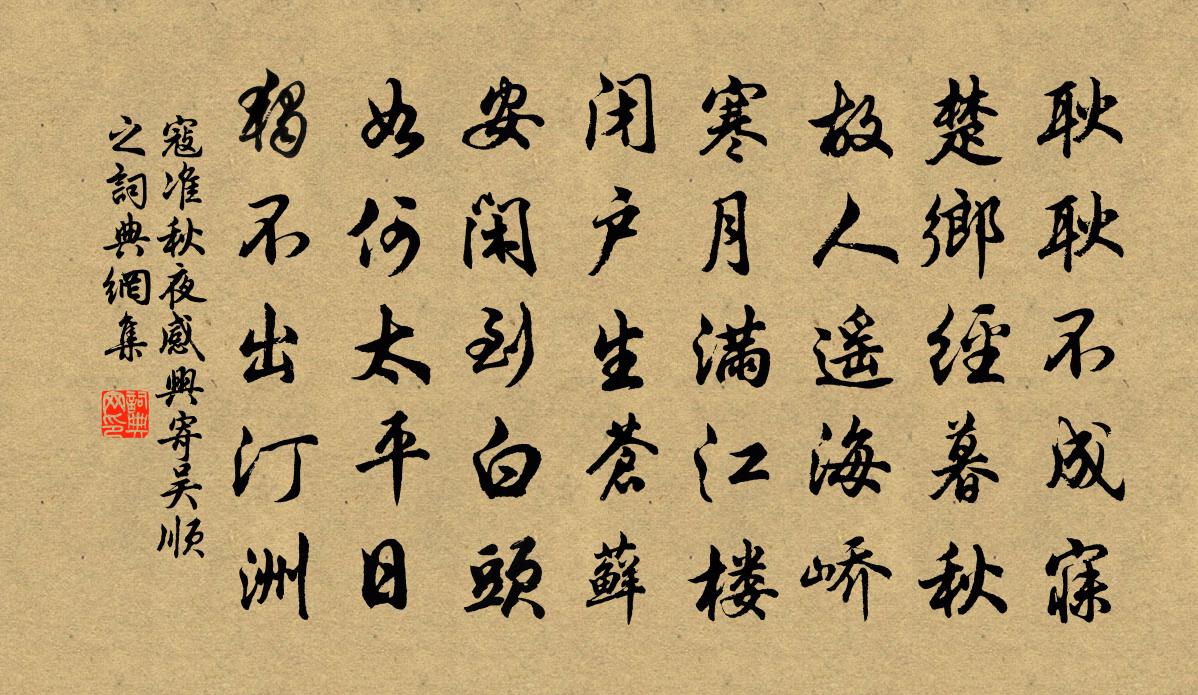 耿耿不成寐
楚鄉經暮秋
故人遥海峤
寒月滿江楼
闭户生蒼蘚
安閑到白頭
如何太平日
獨不出汀洲
寇准秋夜感興寄吴順
之詞典網集
詞典
网印